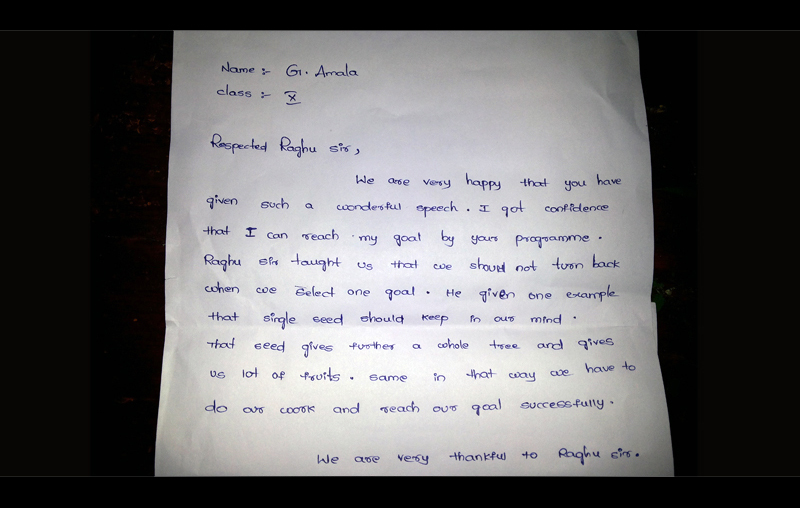 Name :- G. Amala
class :- X
Respected Raghu sir,
We are very happy that you have
given such a wonderful speech. I got confidence
that I can reach my goal by your programme.
Raghu sir taught us that we should not turn back
when we select one goal. He given one example
that single seed should keep in our mind.
That seed gives further a whole tree and gives
us lot of fruits. same in that way we have to
do our work and reach our goal successfully.
We are very thankful to Raghu sir.